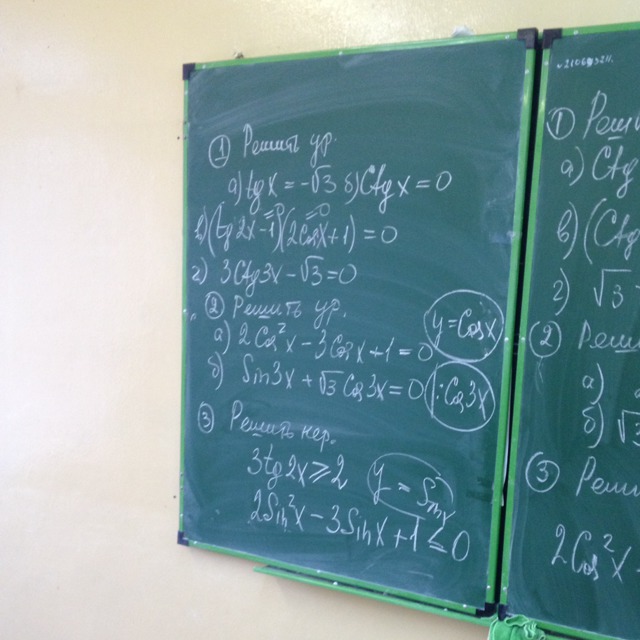 ① Решить ур.
а) tg x = -√3 б) Ctg x = 0
в) (tg 2x - 1)(2Cos x + 1) = 0
г) 3Ctg3x - √3 = 0
② Решить ур.
а) 2Cos²x - 3Cos x + 1 = 0
y = Cos x
б) Sin3x + √3 Cos3x = 0
: Cos3x
③ Решить нер.
3tg2x ≥ 2
y = Sin x
2Sin²x - 3Sinx + 1 ≤ 0
①
а) Ctg
в) (Ctg
г) √3 -
②
а)
б) √3
③
2Cos²x -